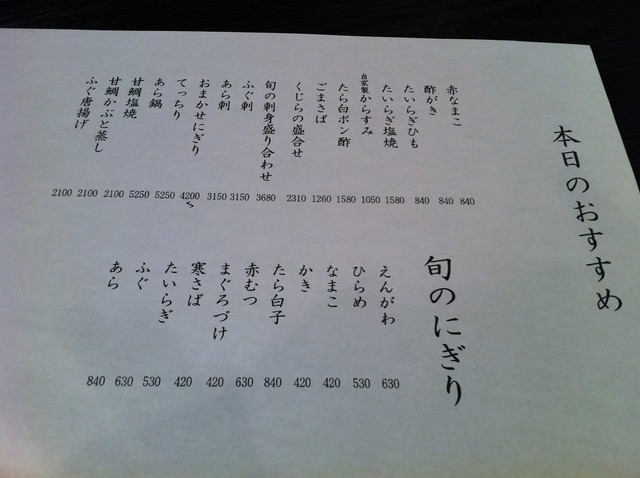 本日のおすすめ
赤なまこ 840
酢がき 840
たいらぎひも 840
たいらぎ塩焼 1580
自家製からすみ 1050
たら白ポン酢 1580
ごまさば 1260
くじらの盛合せ 2310
旬の刺身盛り合わせ 3680
ふぐ刺 3150
あら刺 3150
おまかせにぎり 4200〜
てっちり 5250
あら鍋 5250
甘鯛塩焼 2100
甘鯛かぶと蒸し 2100
ふぐ唐揚げ 2100
旬のにぎり
えんがわ 630
ひらめ 530
なまこ 420
かき 420
たら白子 840
赤むつ 630
まぐろづけ 420
寒さば 420
たいらぎ 530
ふぐ 630
あら 840